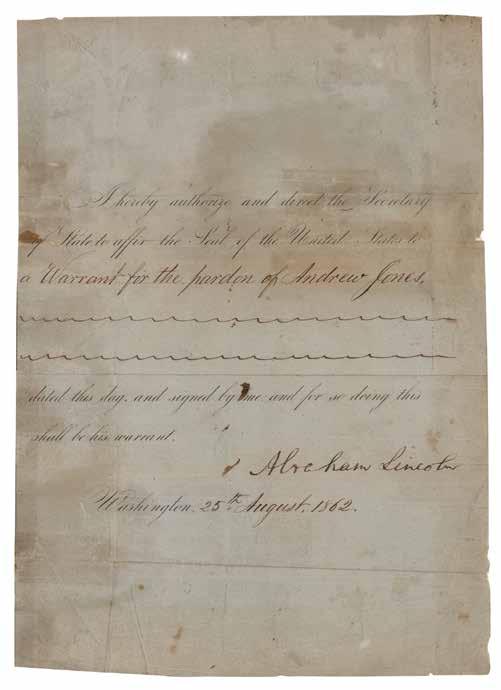 I hereby authorize and direct the Secretary
of State to affix the Seal of the United States to
a Warrant for the pardon of Andrew Jones,
dated this day, and signed by me and for so doing this
shall be his warrant.
Abraham Lincoln
Washington, 25th August, 1862.